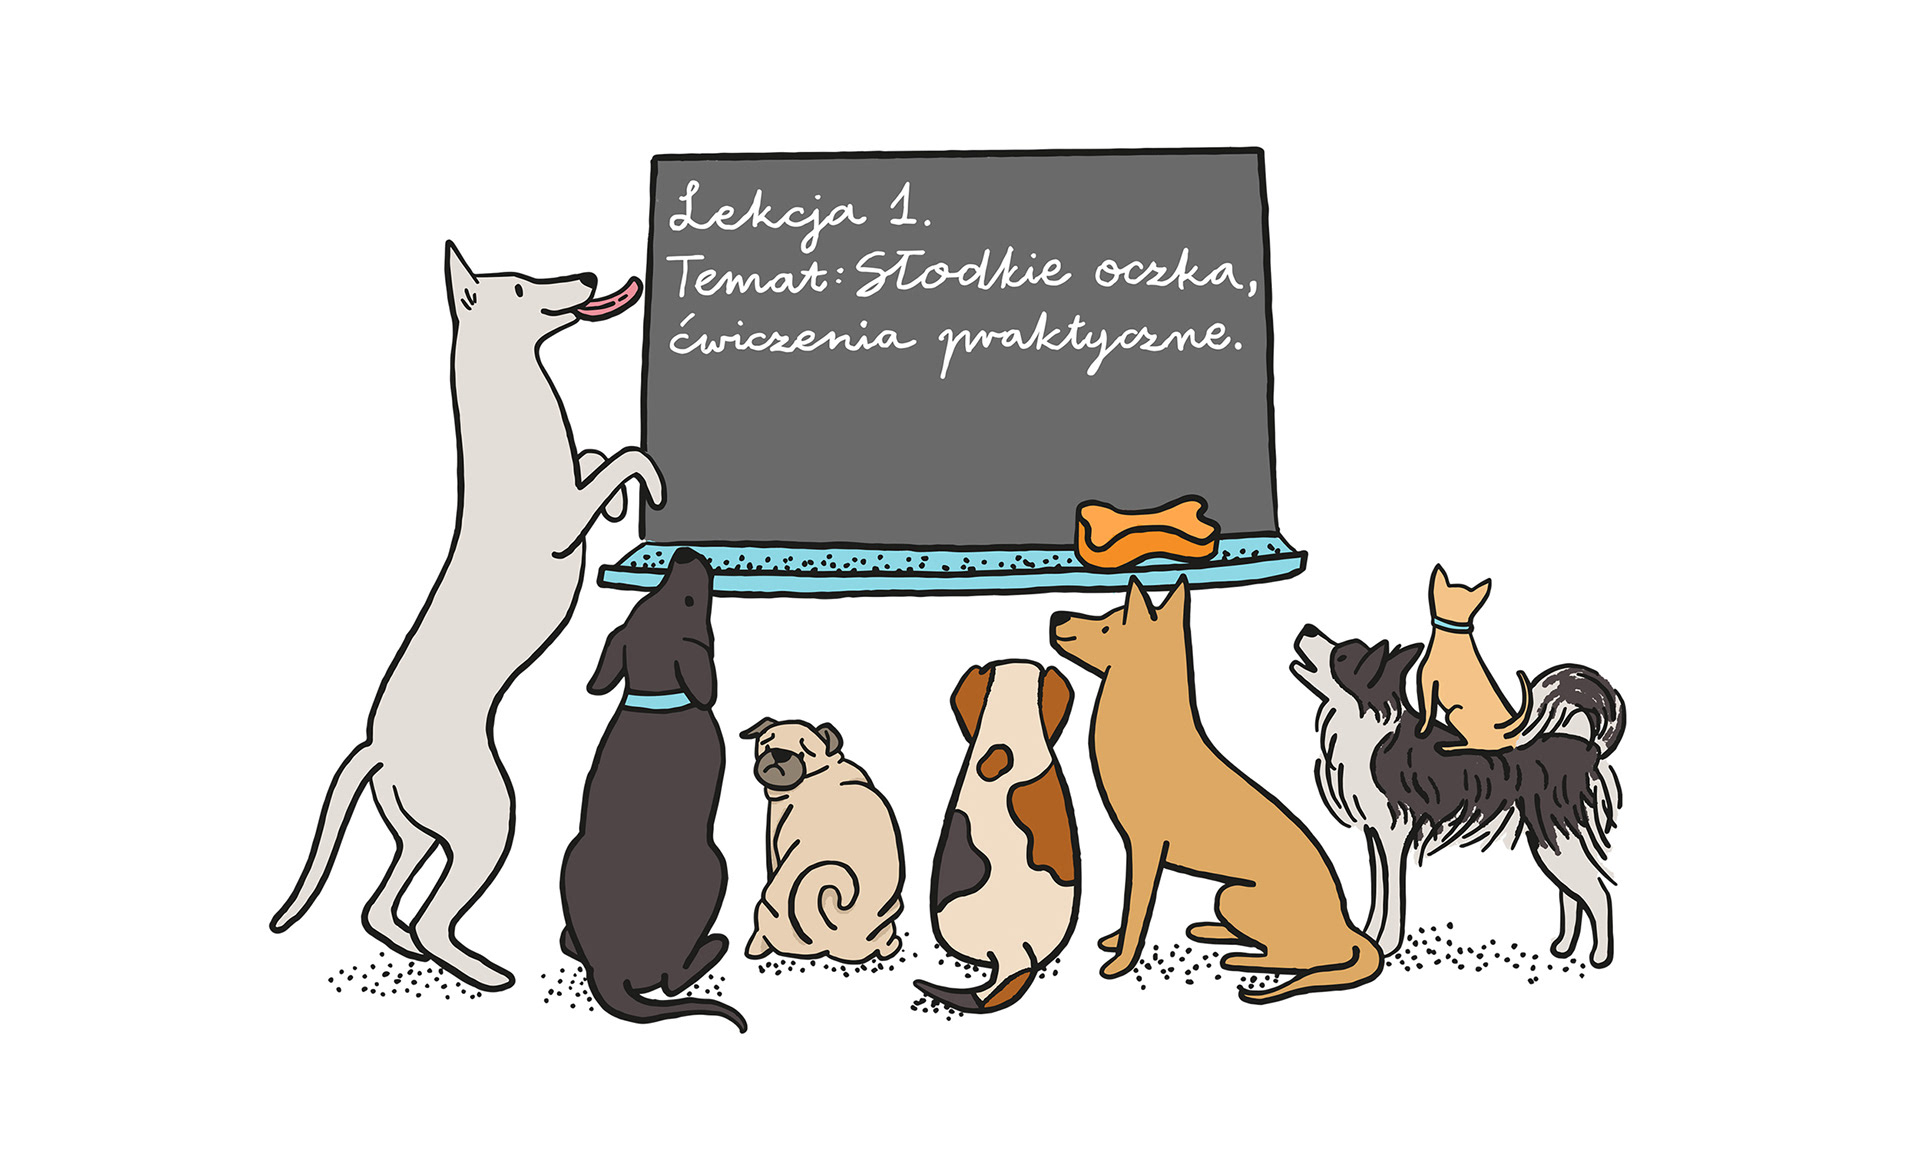 Lekcja 1.
Temat: Słodkie oczka,
ćwiczenia praktyczne.